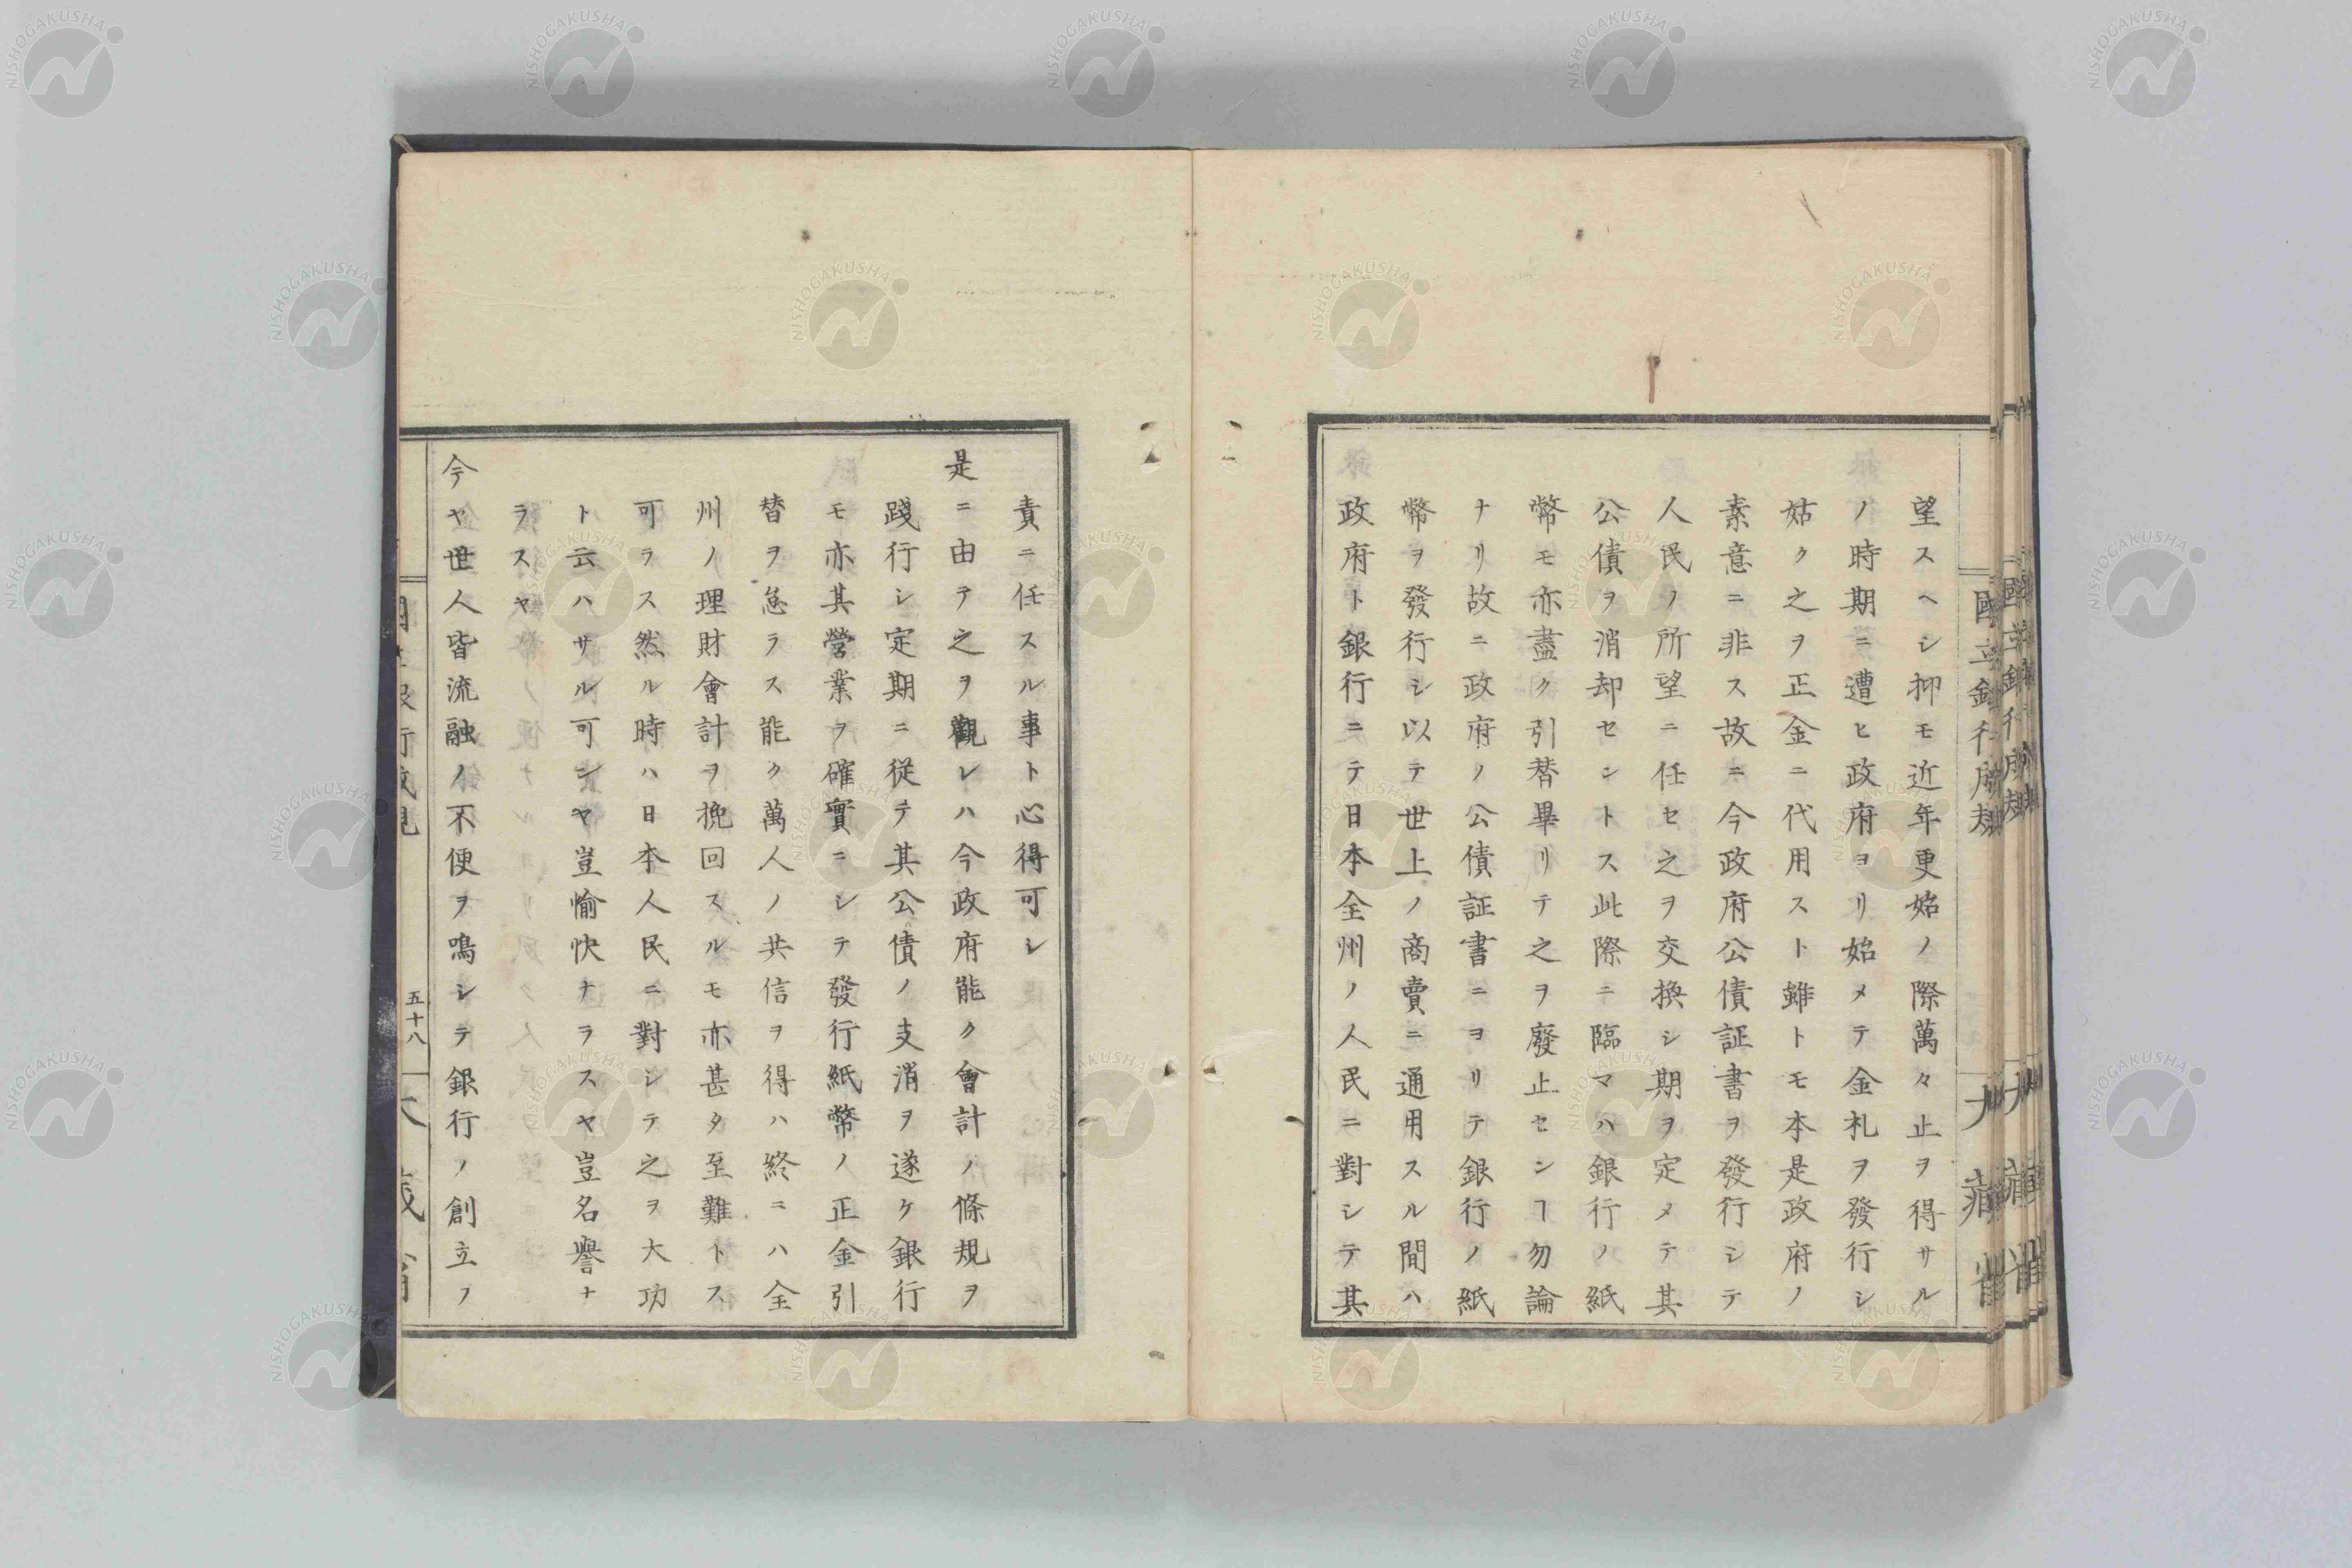 望スヘシ抑モ近年更始ノ際萬々止ヲ得サル
ノ時期ニ遭ヒ政府ヨリ始メテ金札ヲ發行シ
姑ク之ヲ正金ニ代用スト雖トモ本是政府ノ
素意ニ非ス故ニ今政府公債証書ヲ發行シテ
人民ノ所望ニ任セ之ヲ交換シ期ヲ定メテ其
公債ヲ消却セントス此際ニ臨マハ銀行ノ紙
幣モ亦盡ク引替畢リテ之ヲ廢止センヿ勿論
ナリ故ニ政府ノ公債証書ニヨリテ銀行ノ紙
幣ヲ發行シ以テ世上ノ商賣ニ通用スル間ハ
政府ト銀行ニテ日本全州ノ人民ニ對シテ其
責ニ任スル事ト心得可シ
是ニ由テ之ヲ觀レハ今政府能ク會計ノ條規ヲ
踐行シ定期ニ從テ其公債ノ支消ヲ遂ケ銀行
モ亦其營業ヲ確實ニシテ發行紙幣ノ正金引
替ヲ怠ラス能ク萬人ノ共信ヲ得ハ終ニハ全
州ノ理財會計ヲ挽回スルモ亦甚タ至難トス
可ラス然ル時ハ日本人民ニ對シテ之ヲ大功
ト云ハサル可ンヤ豈愉快ナラスヤ豈名譽ナ
ラスヤ
今ヤ世人皆流融ノ不便ヲ鳴シテ銀行ノ創立ヲ
五十八
NISHOGAKUSHA